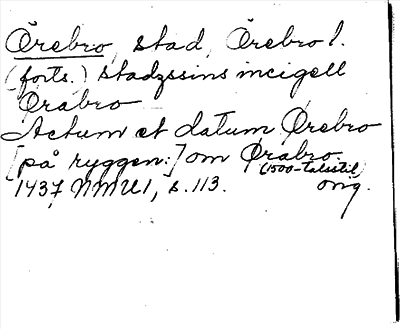 Örebro, stad, Örebro l.
(forts.) stadzssins incigell
Ørabro
Actum et datum Ørebro
[på ryggen:] om Ørabro
(1500-talsstil)
1437 NMU1, s. 113. orig.